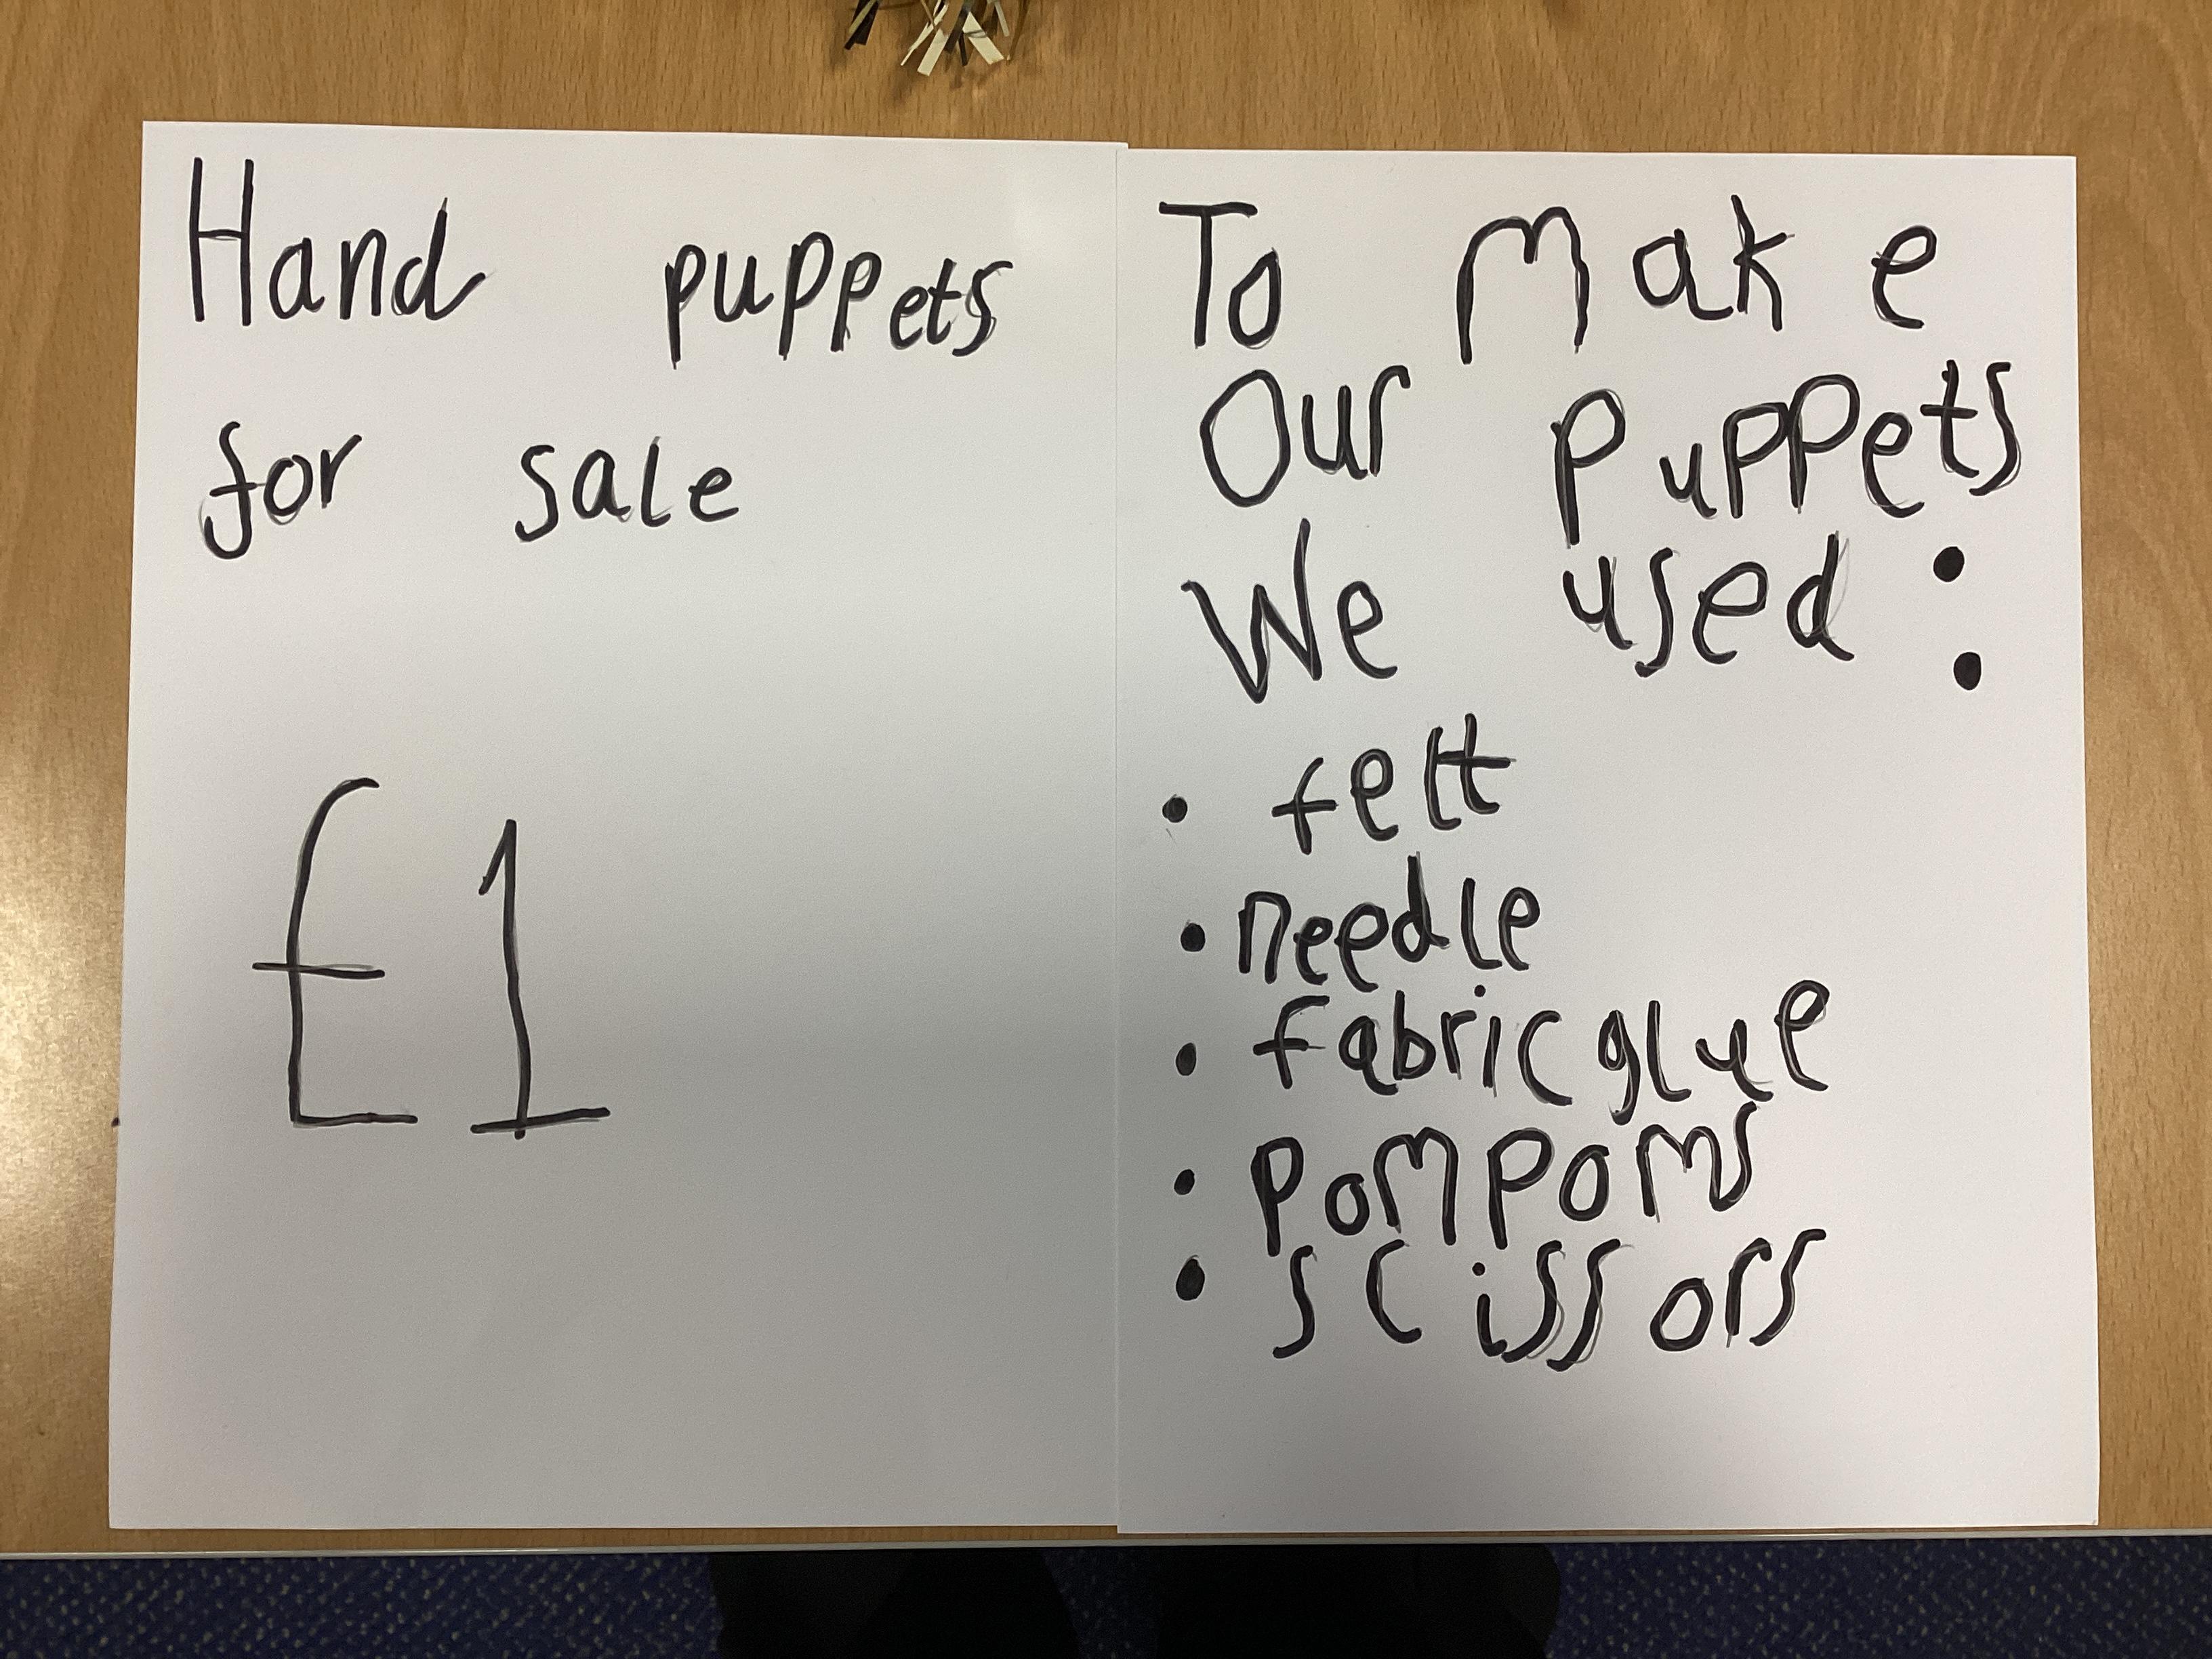 Hand puppets
for sale
£1
To make
Our puppets
We used :
• felt
• needle
• fabric glue
• pompoms
• scissors